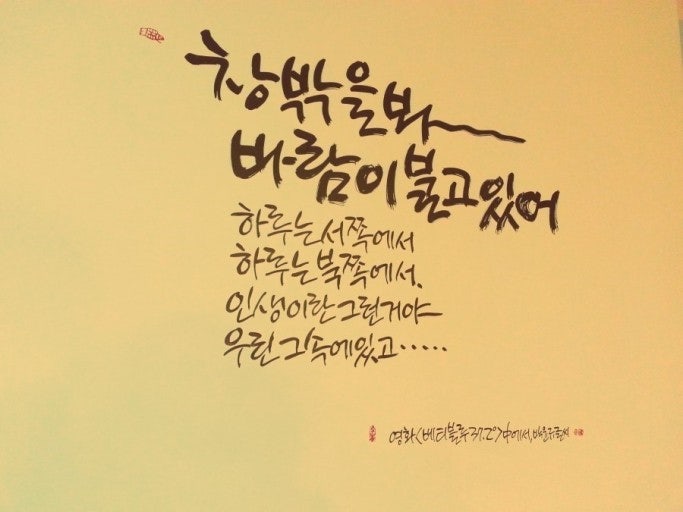 창밖을봐
바람이불고있어
하루는서쪽에서
하루는북쪽에서.
인생이란그런거야
우린그속에있고·····
영화<베티블루37.2°>中에서,